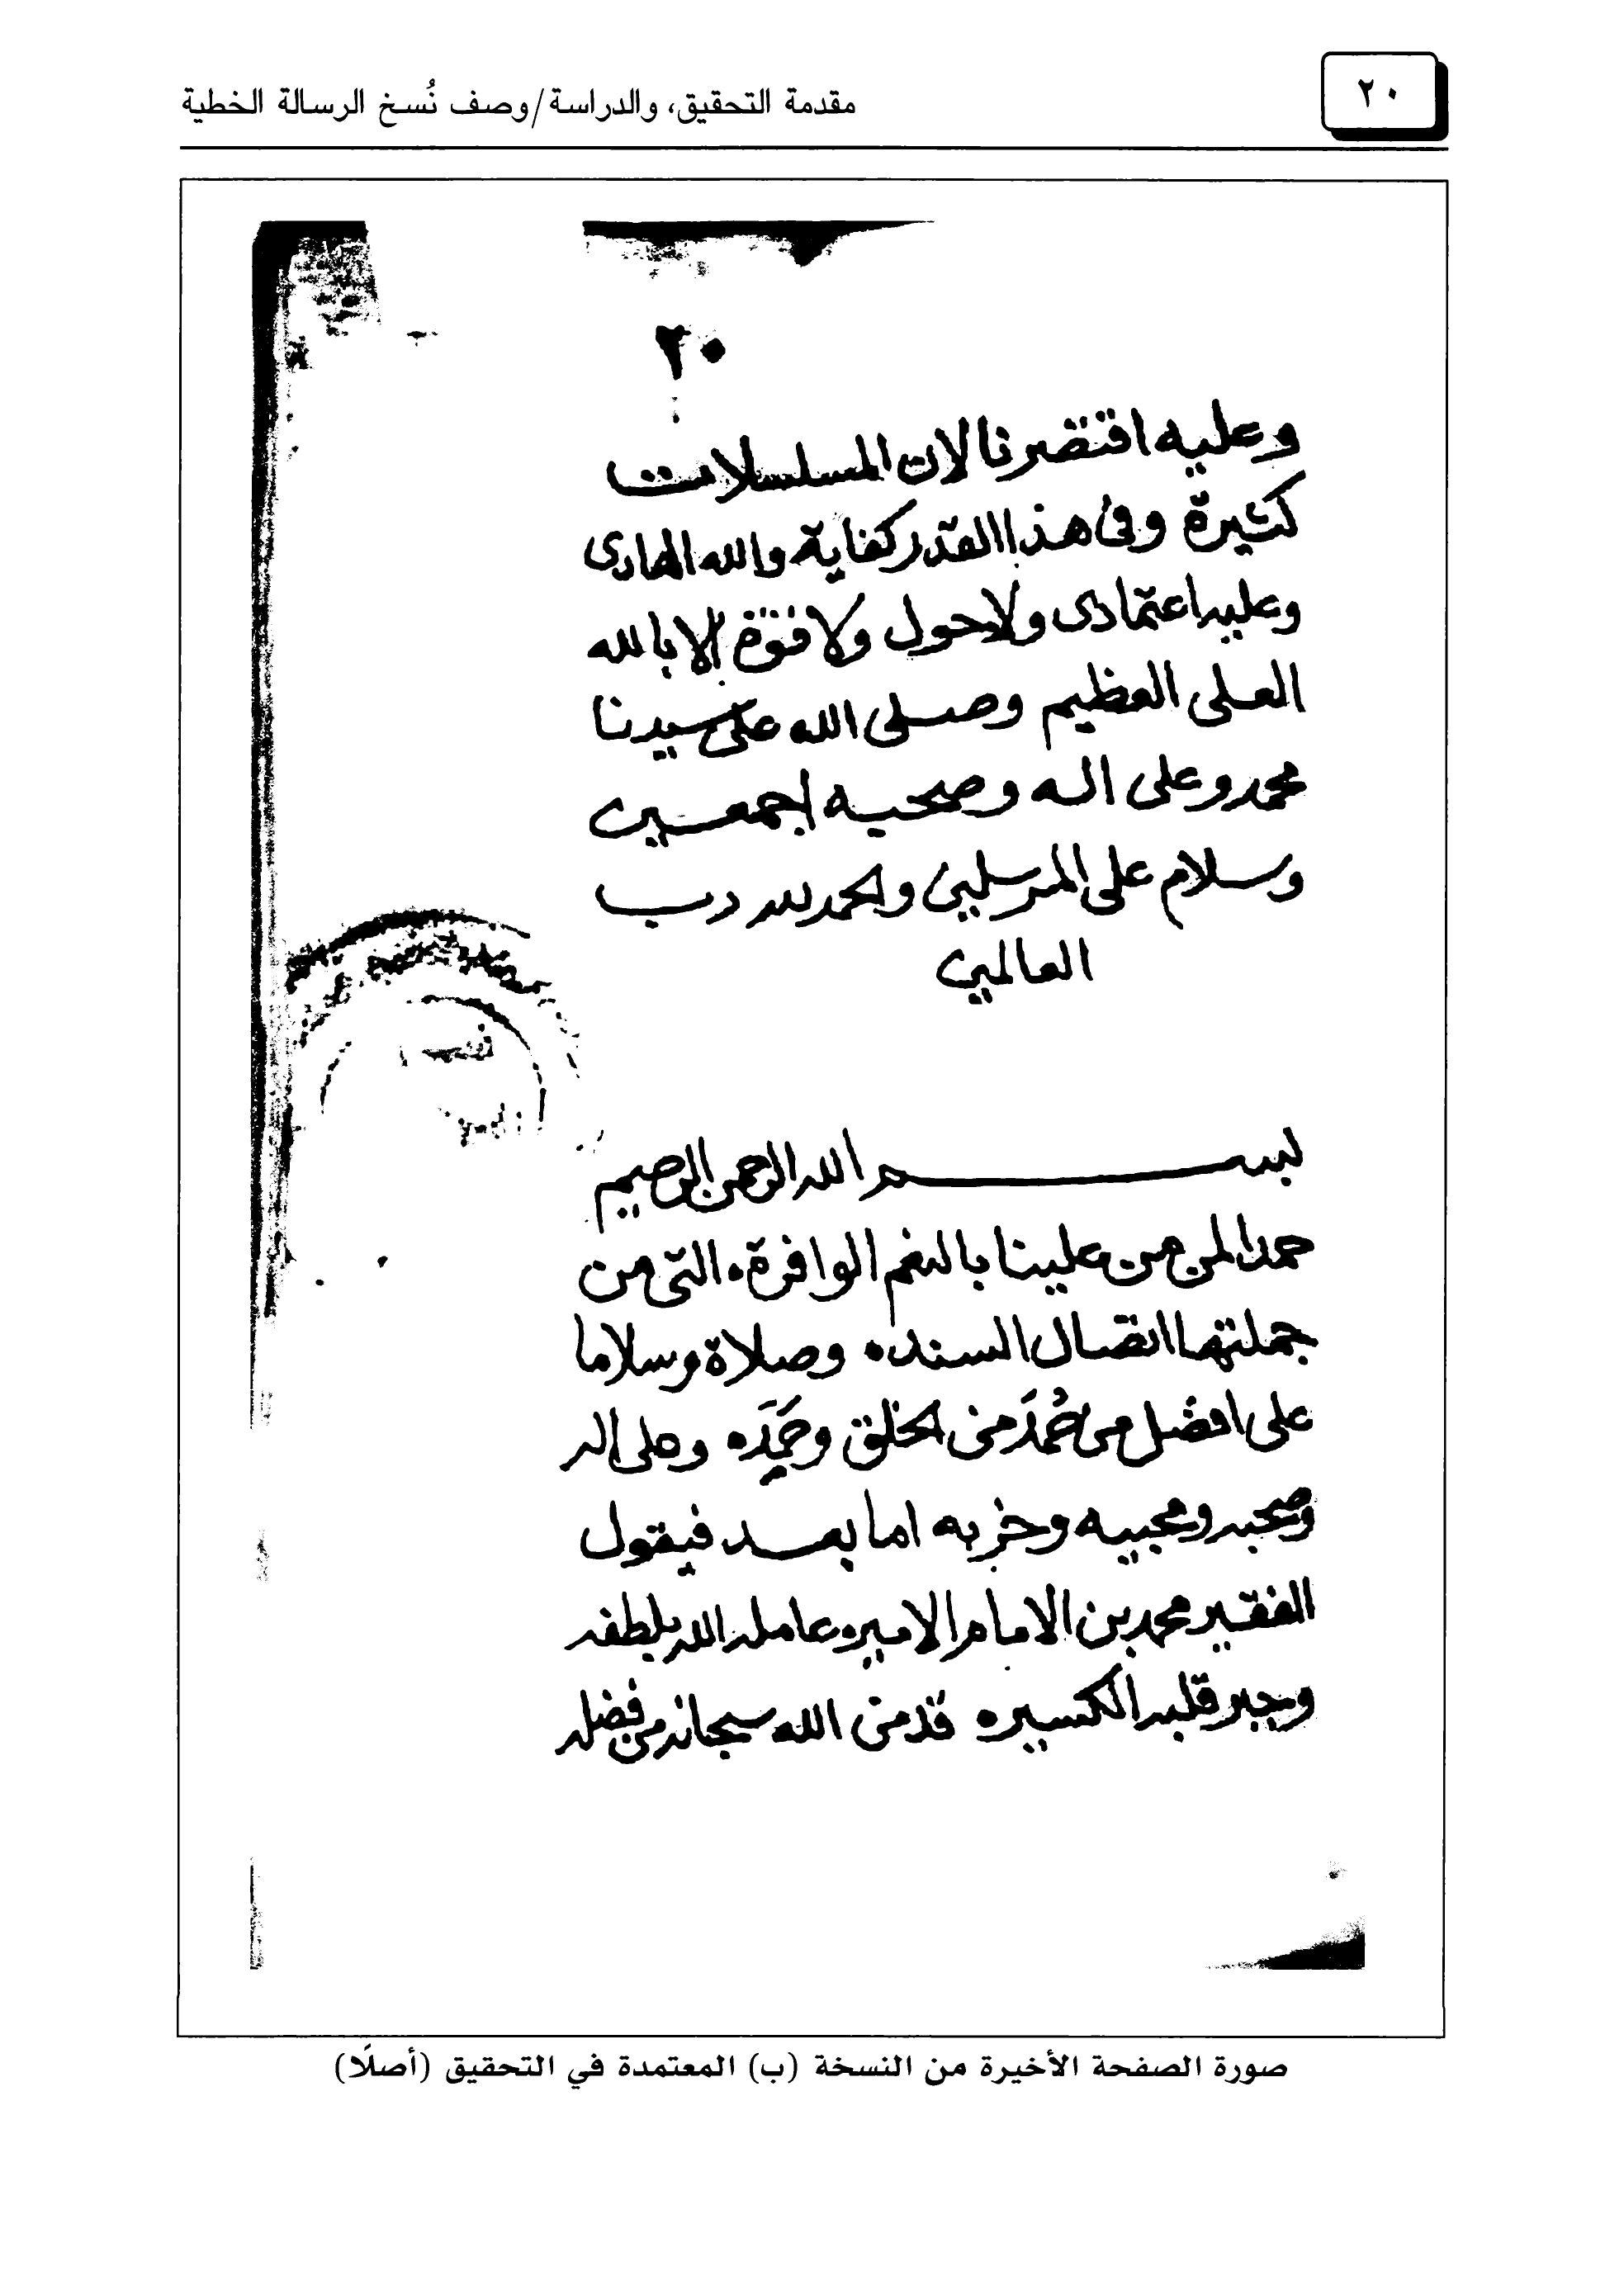 ٢٠
مقدمة التحقيق، والدراسة/وصف نُسخ الرسالة الخطية
٢٠
وعليه اقتصرنا لان المسلسلات
كثيرة وفى هذا القدر كفاية والله الهادى
وعليه اعتمادى ولا حول ولا قوة الا بالله
العلى العظيم وصلى الله على سيدنا
محمد وعلى اله وصحبه اجمعين
وسلام على المرسلين والحمد لله رب
العالمين
بسم الله الرحمن الرحيم
حمدا لمن من علينا بالنعم الوافرة، التى من
جملتها اتصال السنده وصلاة وسلاما
على افضل من حُمدَ من الخلق وحَمِدَه وعلى اله
وصحبه ومحبيه وحزبه اما بعد فيقول
الفقير محمد بن الامام الاميره عامله الله بلطفه
وجبر قلبه الكسيره قد من الله سبحانه من فضله
صورة الصفحة الأخيرة من النسخة (ب) المعتمدة في التحقيق (أصلًا)